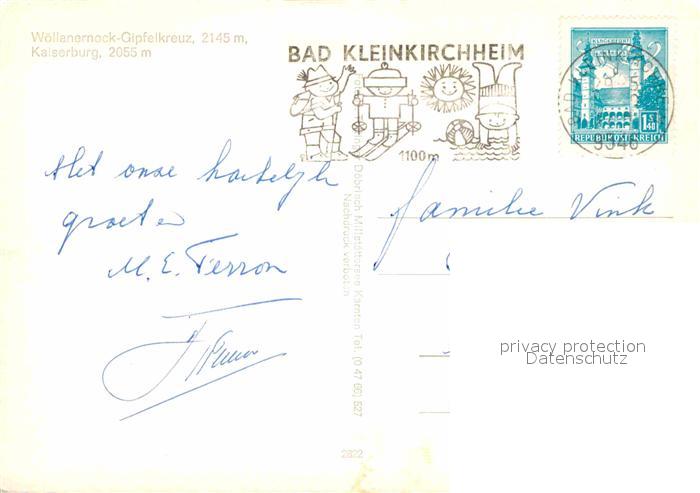 Wöllanernock-Gipfelkreuz, 2145 m,
Kaiserburg, 2055 m
BAD KLEINKIRCHHEIM
1100 m
KLAGENFURT
1 S 40
REPUBLIK ÖSTERREICH
Met onze hartelijke
groeten
M. E. Ferron
familie Vink
Döbriach Millstättersee Kärnten Tel. (0 42 66) 527
Nachdruck verboten
privacy protection
Datenschutz
2822